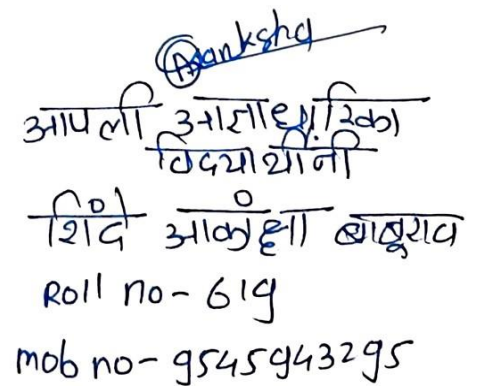 Aanksha
आपली आज्ञाधारिका
विदयार्थीनी
शिंदे आकांक्षा बाबुराव
Roll no - 619
mob no - 9545943295